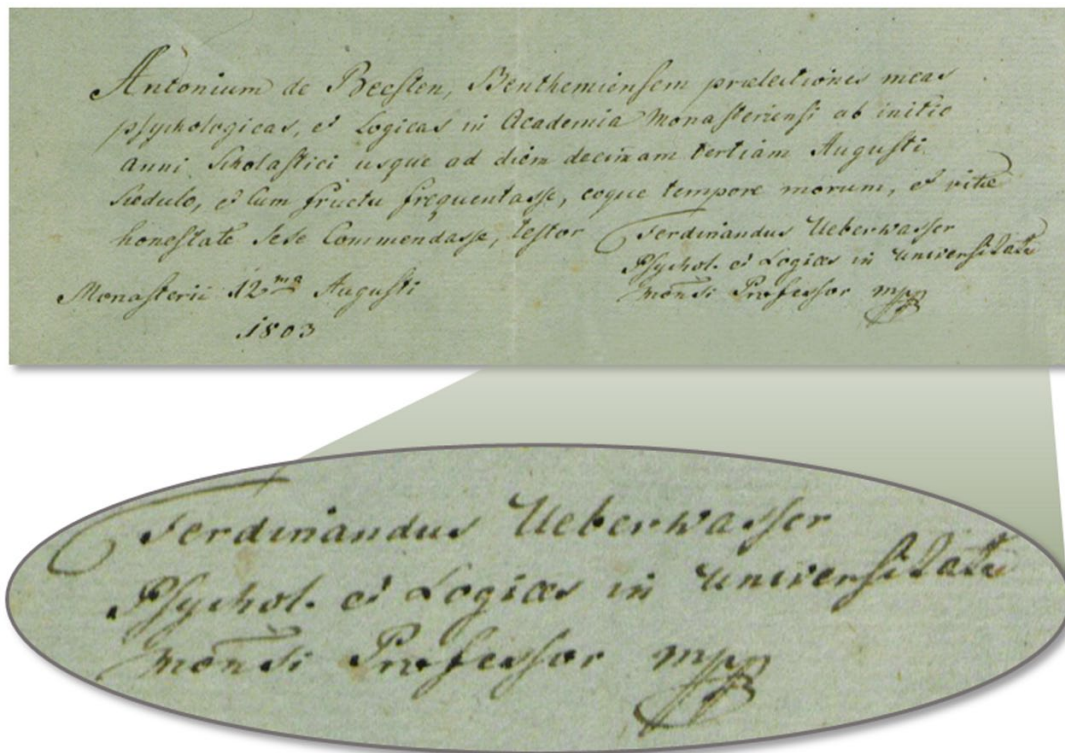 Antonium de Beesten, Benthemiensem prælectiones meas
psychologicas, et Logicas in Academia Monasteriensi ab initio
anni Scholastici usque ad diem decimam tertiam Augusti
Sedulo, et cum fructu frequentasse, eoque tempore morum, et vitæ
honestate sese Commendasse, testor
Ferdinandus Ueberwasser
Psychol. et Logices in universitate
Monsi Professor mpp
Monasterii 12ma Augusti
1803
Ferdinandus Ueberwasser
Psychol. et Logices in universitate
Monsi Professor mpp